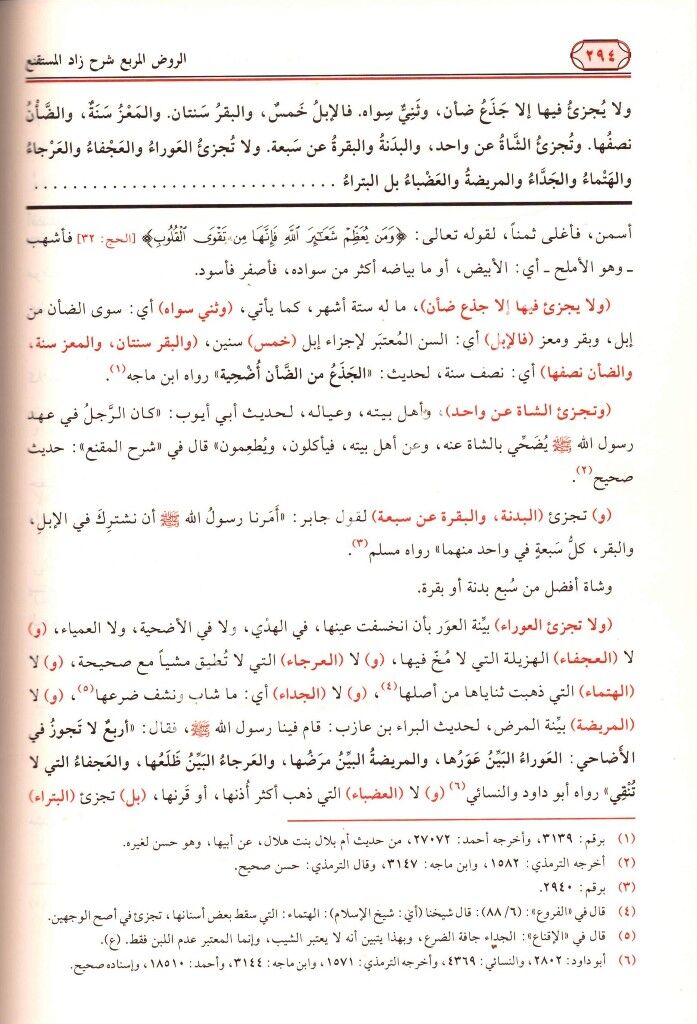 الروض المربع شرح زاد المستقنع
٢٩٤
ولا يُجزئُ فيها إلا جَذَعُ ضأن، وثَنِيٌّ سِواه. فالإبلُ خَمسٌ، والبقرُ سَنتان. والمَعْزُ سَنَةٌ، والضَّأنُ
نصفُها. وتُجزئُ الشَّاةُ عن واحد، والبدَنةُ والبقرةُ عن سَبعة. ولا تُجزئُ العَوراءُ والعَجْفاءُ والعَرْجاءُ
والهَتْماءُ والجَدَّاءُ والمريضةُ والعَضْباءُ بل البتراءُ ................................
أسمن، فأغلى ثمناً، لقوله تعالى: ﴿وَمَن يُعَظِّمْ شَعَٰٓئِرَ ٱللَّهِ فَإِنَّهَا مِن تَقْوَى ٱلْقُلُوبِ﴾ [الحج: ٣٢] فأشهب
ـ وهو الأملح ـ أي: الأبيض، أو ما بياضه أكثر من سواده، فأصفر فأسود.
(ولا يجزئ فيها إلا جذع ضأن)، ما له ستة أشهر، كما يأتي، (وثني سواه) أي: سوى الضأن من
إبل، وبقر ومعز (فالإبل) أي: السن المُعتبَر لإجزاء إبل (خمس) سنين، (والبقر سنتان، والمعز سنة،
والضأن نصفها) أي: نصف سنة، لحديث: «الجَذَعُ من الضَّأن أُضْحِية» رواه ابن ماجه(١).
(وتجزئ الشاة عن واحد)، وأهل بيته، وعياله، لحديث أبي أيوب: «كان الرَّجلُ في عهد
رسول الله ﷺ يُضَحِّي بالشاة عنه، وعن أهل بيته، فيأكلون، ويُطعِمون» قال في «شرح المقنع»: حديث
صحيح(٢).
(و) تجزئ (البدنة، والبقرة عن سبعة) لقول جابر: «أَمَرنا رسولُ الله ﷺ أن نشترِكَ في الإبلِ،
والبقر، كلُّ سَبعةٍ في واحد منهما» رواه مسلم(٣).
وشاة أفضل من سُبع بدنة أو بقرة.
(ولا تجزئ العوراء) بيِّنة العوَر بأن انخسفت عينها، في الهدْي، ولا في الأضحية، ولا العمياء، (و)
لا (العجفاء) الهزيلة التي لا مُخّ فيها، (و) لا (العرجاء) التي لا تُطيق مشياً مع صحيحة، (و) لا
(الهتماء) التي ذهبت ثناياها من أصلها(٤)، (و) لا (الجداء) أي: ما شاب ونشف ضرعها(٥)، (و) لا
(المريضة) بيِّنة المرض، لحديث البراء بن عازب: قام فينا رسول الله ﷺ، فقال: «أربعٌ لا تَجوزُ في
الأَضاحي: العَوراءُ البَيِّنُ عَوَرُها، والمريضةُ البيِّنُ مرَضُها، والعَرجاءُ البَيِّنُ ظَلَعُها، والعَجفاءُ التي لا
تُنْقِي» رواه أبو داود والنسائي(٦) (و) لا (العضباء) التي ذهب أكثر أُذنها، أو قَرنها، (بل) تجزئ (البتراء)
(١) برقم: ٣١٣٩، وأخرجه أحمد: ٢٧٠٧٢، من حديث أم بلال بنت هلال، عن أبيها، وهو حسن لغيره.
(٢) أخرجه الترمذي: ١٥٨٢، وابن ماجه: ٣١٤٧، وقال الترمذي: حسن صحيح.
(٣) برقم: ٢٩٤٠.
(٤) قال في «الفروع»: (٨٨/٦): قال شيخنا (أيْ: شيخ الإسلام): الهتماء: التي سقط بعض أسنانها، تجزئ في أصح الوجهين.
(٥) قال في «الإقناع»: الجداء جافة الضرع، وبهذا يتبين أنه لا يعتبر الشيب، وإنما المعتبر عدم اللبن فقط. (ع).
(٦) أبو داود: ٢٨٠٢، والنسائي: ٤٣٦٩، وأخرجه الترمذي: ١٥٧١، وابن ماجه: ٣١٤٤، وأحمد: ١٨٥١٠، وإسناده صحيح.